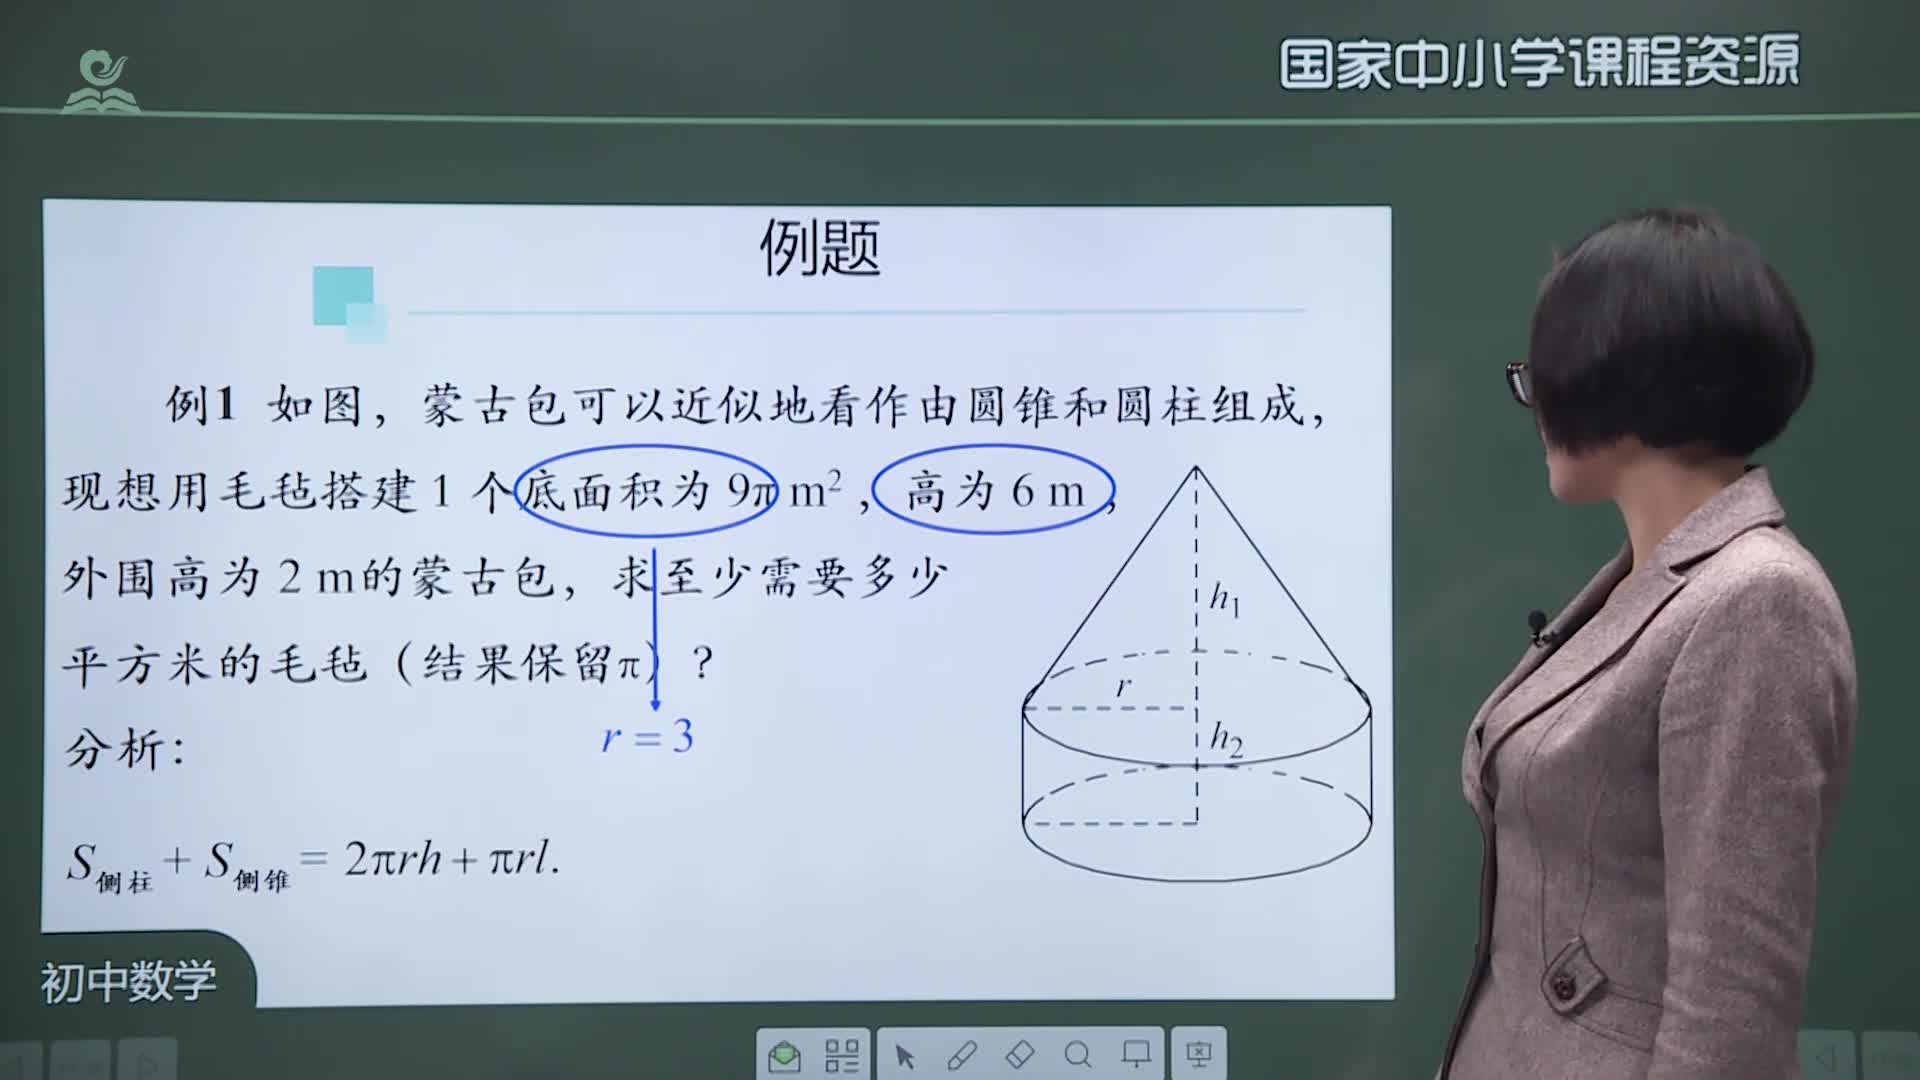 国家中小学课程资源
例题
例1 如图，蒙古包可以近似地看作由圆锥和圆柱组成，
现想用毛毡搭建 1 个底面积为 9π m²，高为 6 m，
外围高为 2 m的蒙古包，求至少需要多少
平方米的毛毡（结果保留π）？
分析：
r = 3
S侧柱 + S侧锥 = 2πrh + πrl.
h₁
r
h₂
初中数学